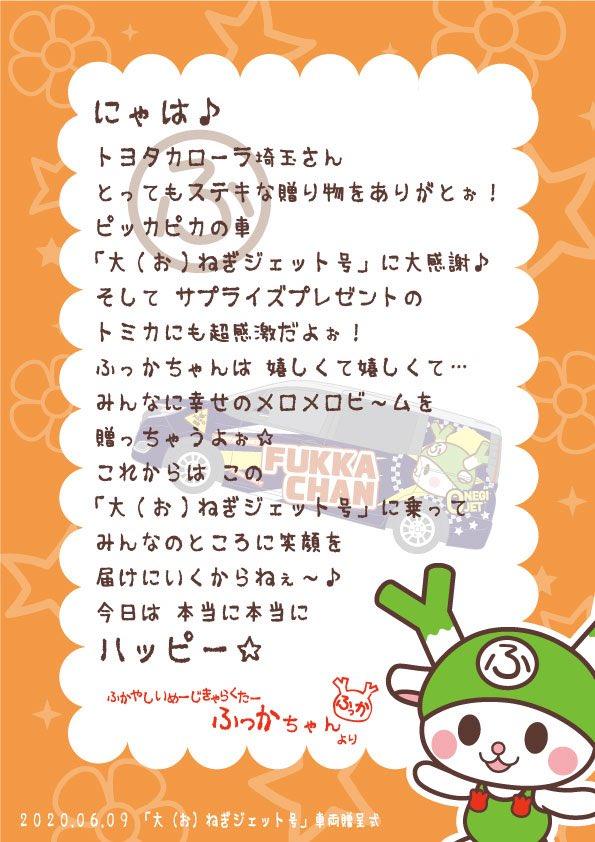 にゃは♪
トヨタカローラ埼玉さん
とってもステキな贈り物をありがとぉ！
ピッカピカの車
「大（お）ねぎジェット号」に大感謝♪
そして サプライズプレゼントの
トミカにも超感激だよぉ！
ふっかちゃんは 嬉しくて嬉しくて…
みんなに幸せのメロメロビ～ムを
贈っちゃうよぉ☆
これからは この
「大（お）ねぎジェット号」に乗って
みんなのところに笑顔を
届けにいくからねぇ～♪
今日は 本当に本当に
ハッピー☆
ふかやしいめーじきゃらくたー
ふっかちゃん
より
ふっか
ふ
FUKKA
CHAN
NEGI
JET
ふ
2020.06.09 「大（お）ねぎジェット号」車両贈呈式